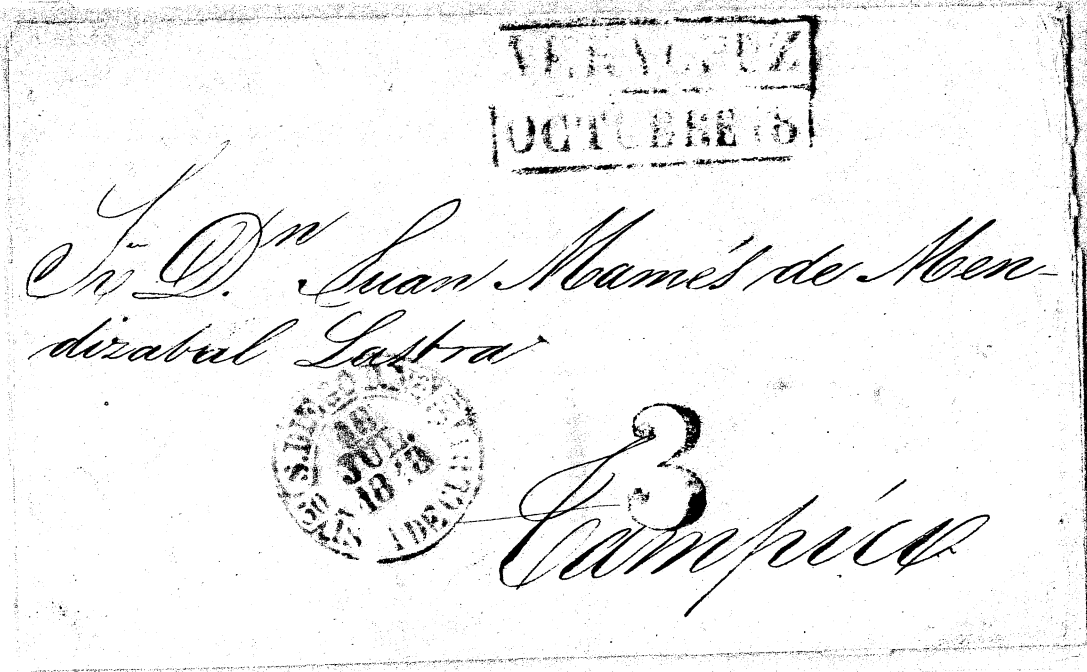 VERACRUZ
OCTUBRE
Sr. Dn. Juan Mamés de Men-
dizabal Lastra
18
JUL.
1848
3
Tampico